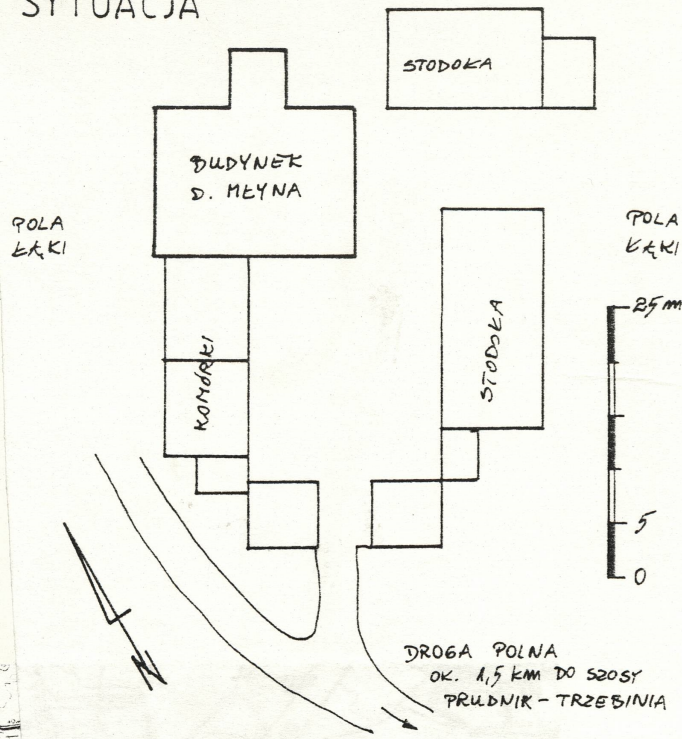 SYTUACJA
STODOŁA
BUDYNEK
D. MŁYNA
POLA
ŁĄKI
POLA
ŁĄKI
25 m
STODOŁA
KOMÓRKI
5
0
N
DROGA POLNA
OK. 1,5 km DO SZOSY
PRUDNIK - TRZEBINIA